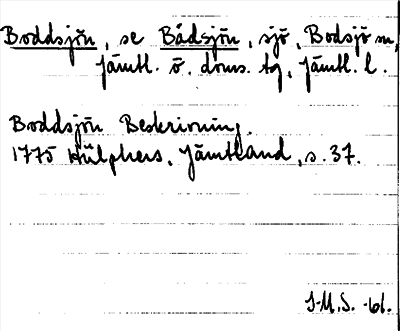 Boddsjön, se Bådsjön, sjö, Bodsjö sn,
Jämtl. ö. doms. tg, Jämtl. l.
Boddsjön Beskrivning.
1775 Hülphers, Jämtland, s. 37.
J-M.S. -61.